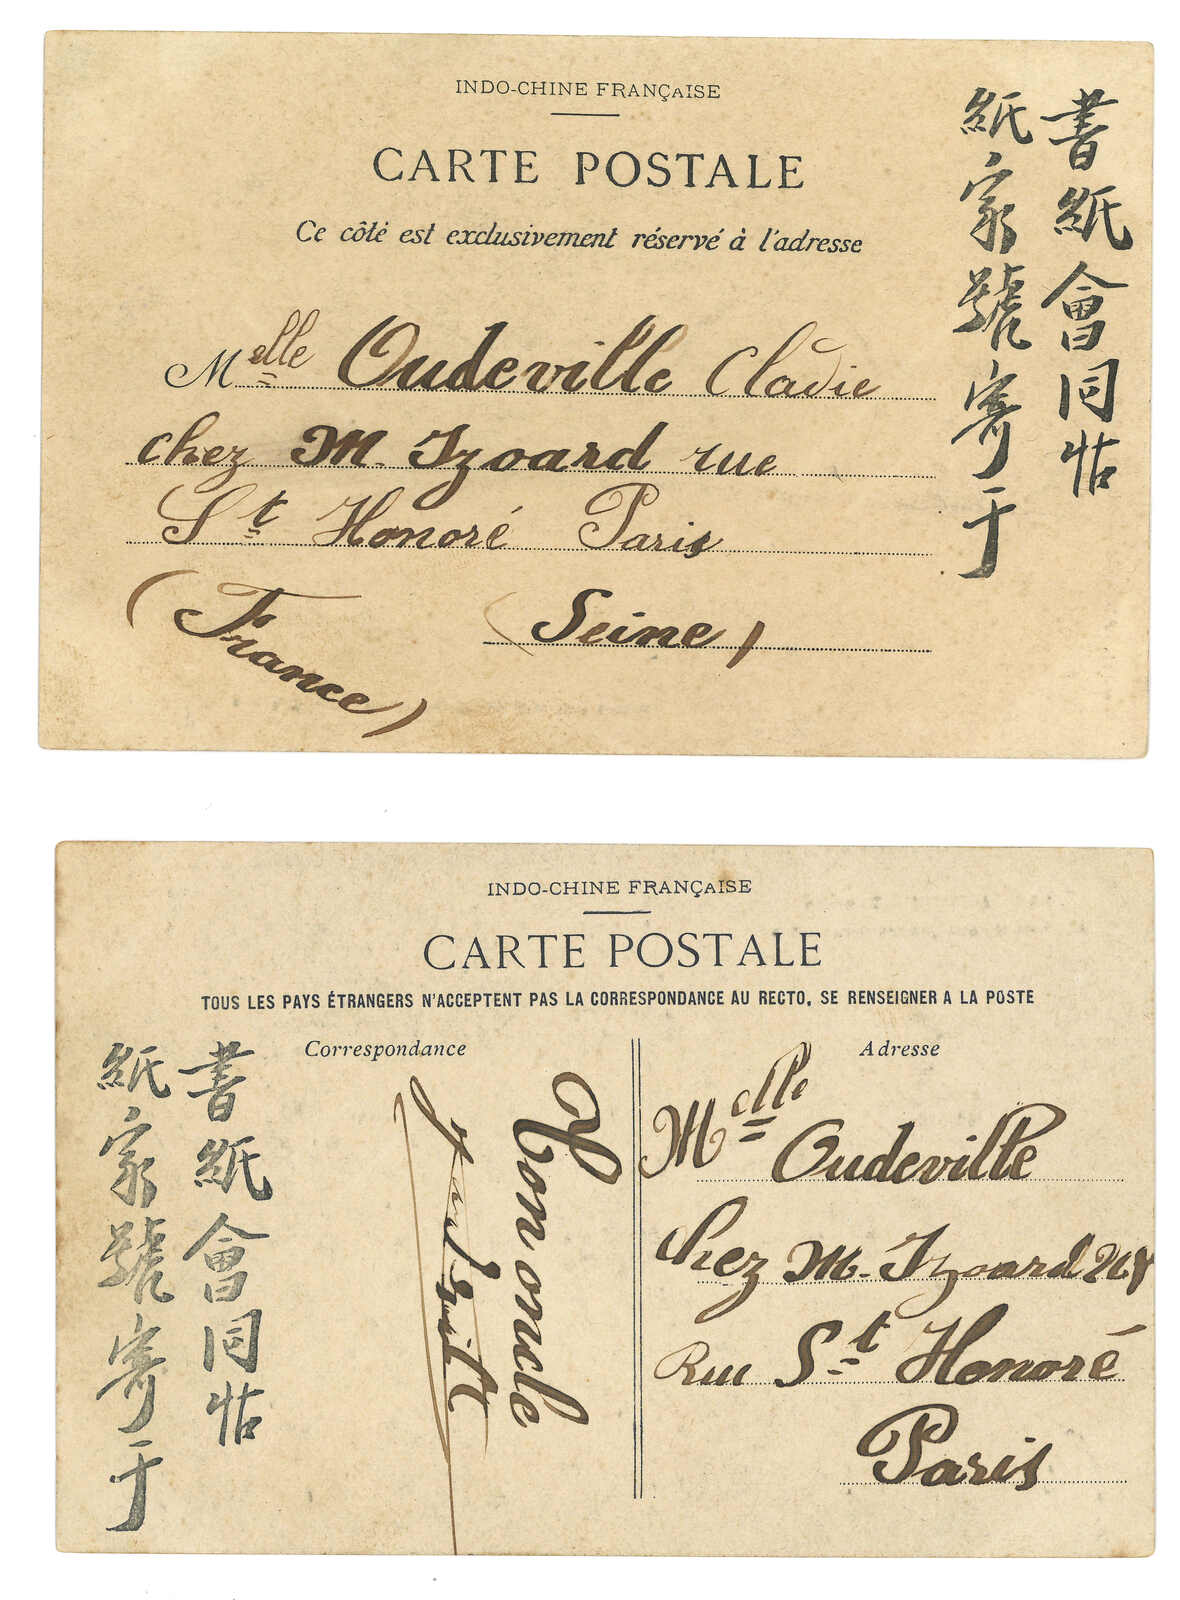 INDO-CHINE FRANÇAISE
CARTE POSTALE
Ce côté est exclusivement réservé à l'adresse
Melle Oudeville Cladie
chez M. Izoard rue
St Honoré Paris
(Seine)
(France)
書紙會同帖
紙家號寄于
INDO-CHINE FRANÇAISE
CARTE POSTALE
TOUS LES PAYS ÉTRANGERS N'ACCEPTENT PAS LA CORRESPONDANCE AU RECTO, SE RENSEIGNER A LA POSTE
Correspondance
書紙會同帖
紙家號寄于
Adresse
Melle
Oudeville
chez M. Izoard
Rue St Honoré
Paris